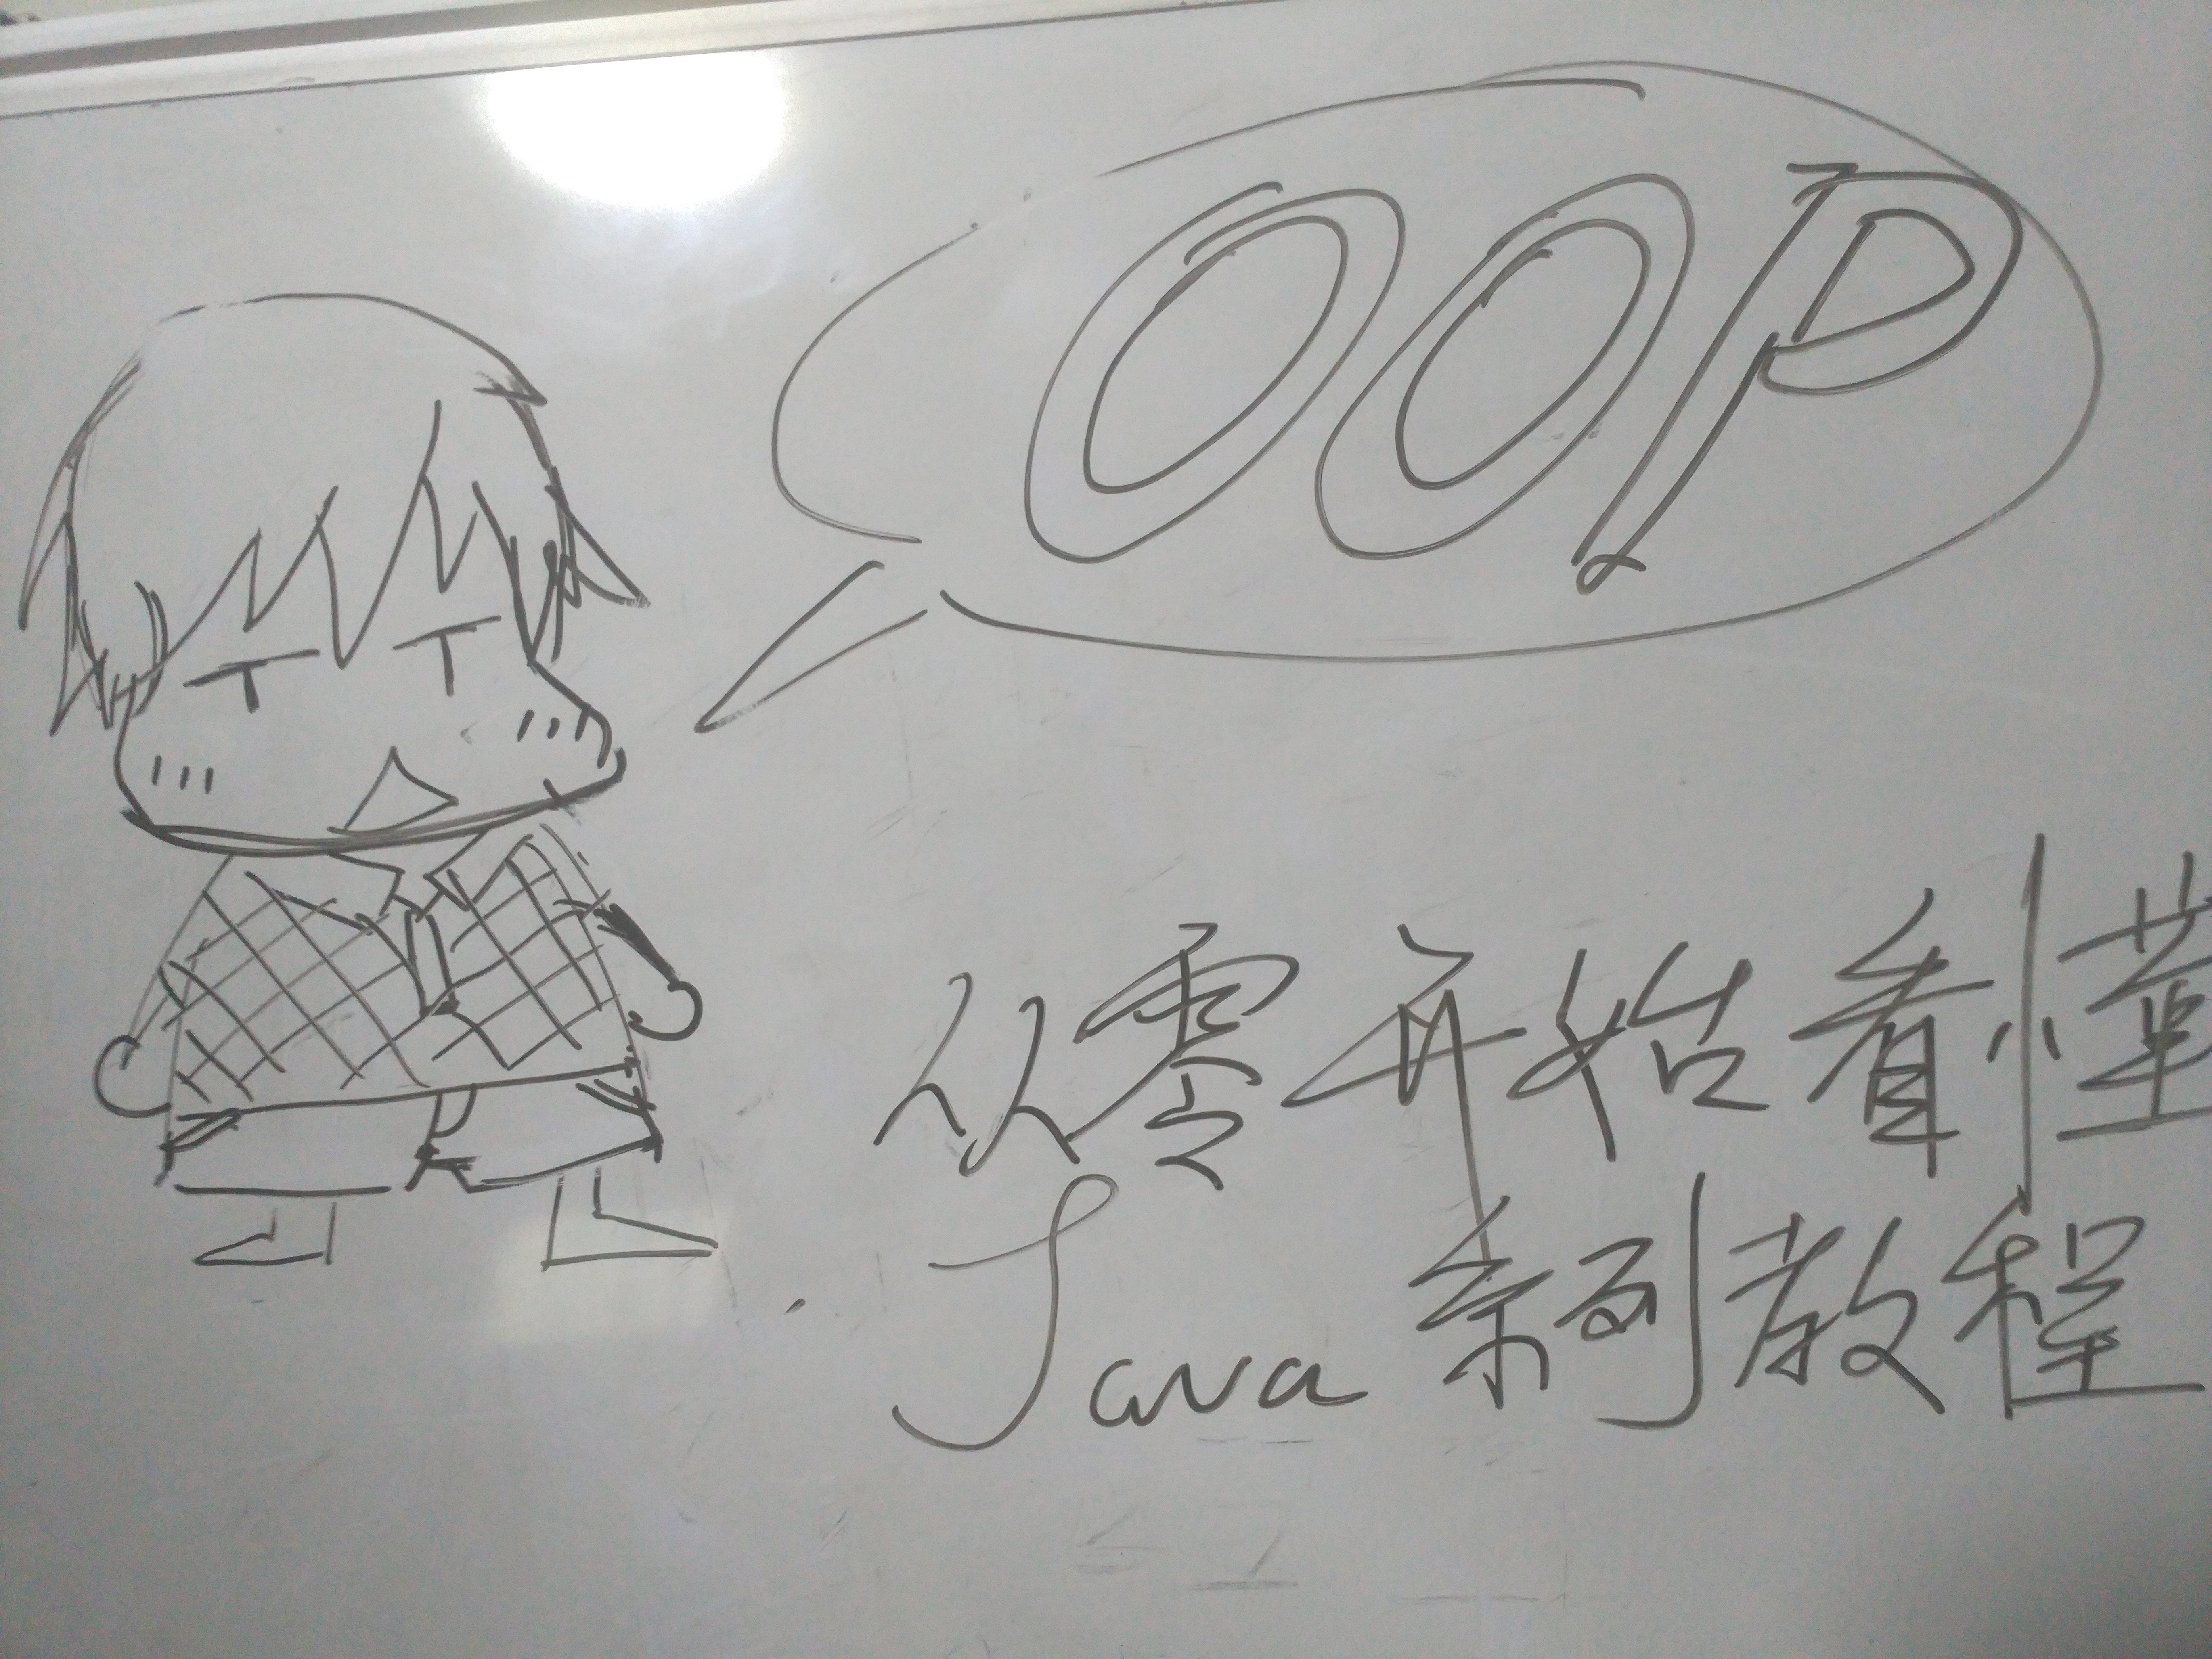 OOP
从零开始看懂
Java系列教程